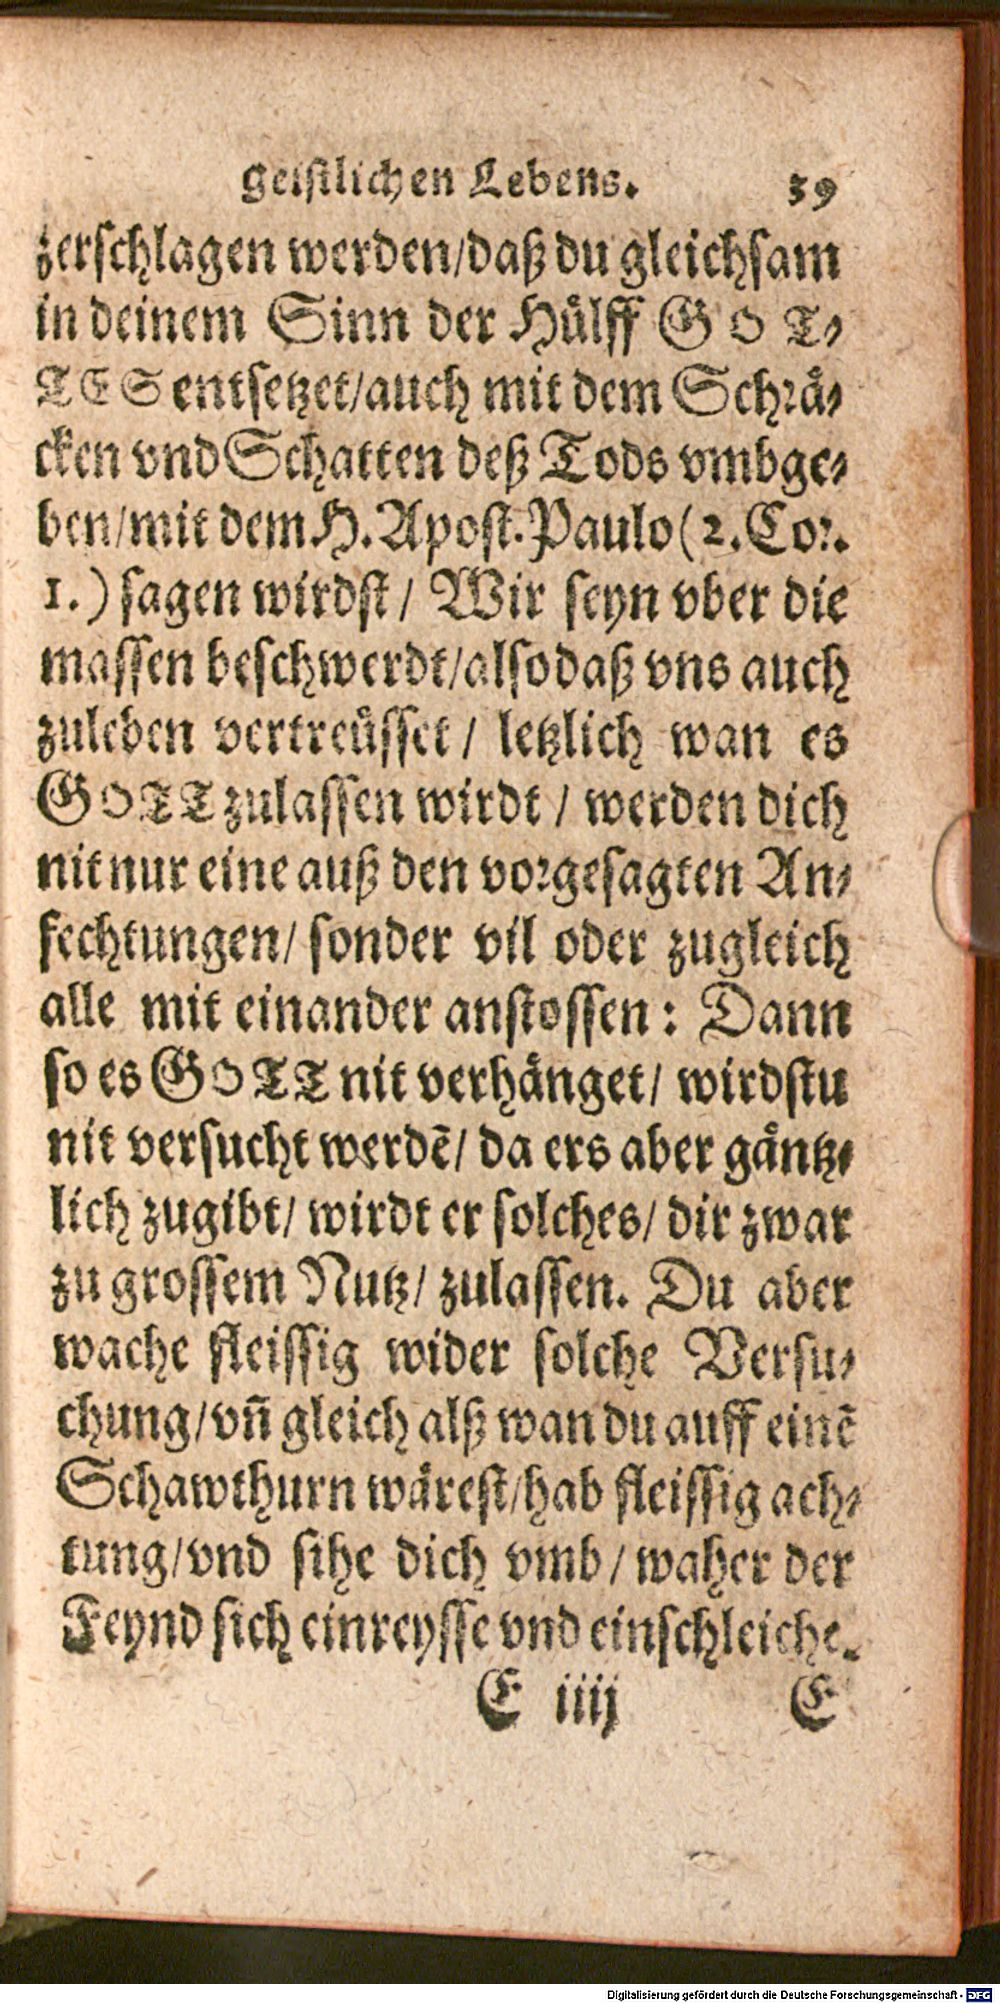 geistlichen Lebens. 39
zerschlagen werden/daß du gleichsam
in deinem Sinn der Hülff GOT-
TES entsetzet/auch mit dem Schrä-
cken vnd Schatten deß Tods vmbge-
ben/mit dem H. Apost. Paulo (2. Cor.
1.) sagen wirdst/ Wir seyn vber die
massen beschwerdt/also daß vns auch
zuleben vertreüsset / letzlich wan es
GOTT zulassen wirdt / werden dich
nit nur eine auß den vorgesagten An-
fechtungen/ sonder vil oder zugleich
alle mit einander anstossen: Dann
so es GOTT nit verhänget/ wirdstu
nit versucht werdē/ da ers aber gäntz-
lich zugibt/ wirdt er solches/ dir zwar
zu grossem Nutz/ zulassen. Du aber
wache fleissig wider solche Versu-
chung/vñ gleich alß wan du auff einē
Schawthurn wärest/hab fleissig ach-
tung/vnd sihe dich vmb/ waher der
Feynd sich einreysse vnd einschleiche.
E iiij E
Digitalisierung gefördert durch die Deutsche Forschungsgemeinschaft - DFG